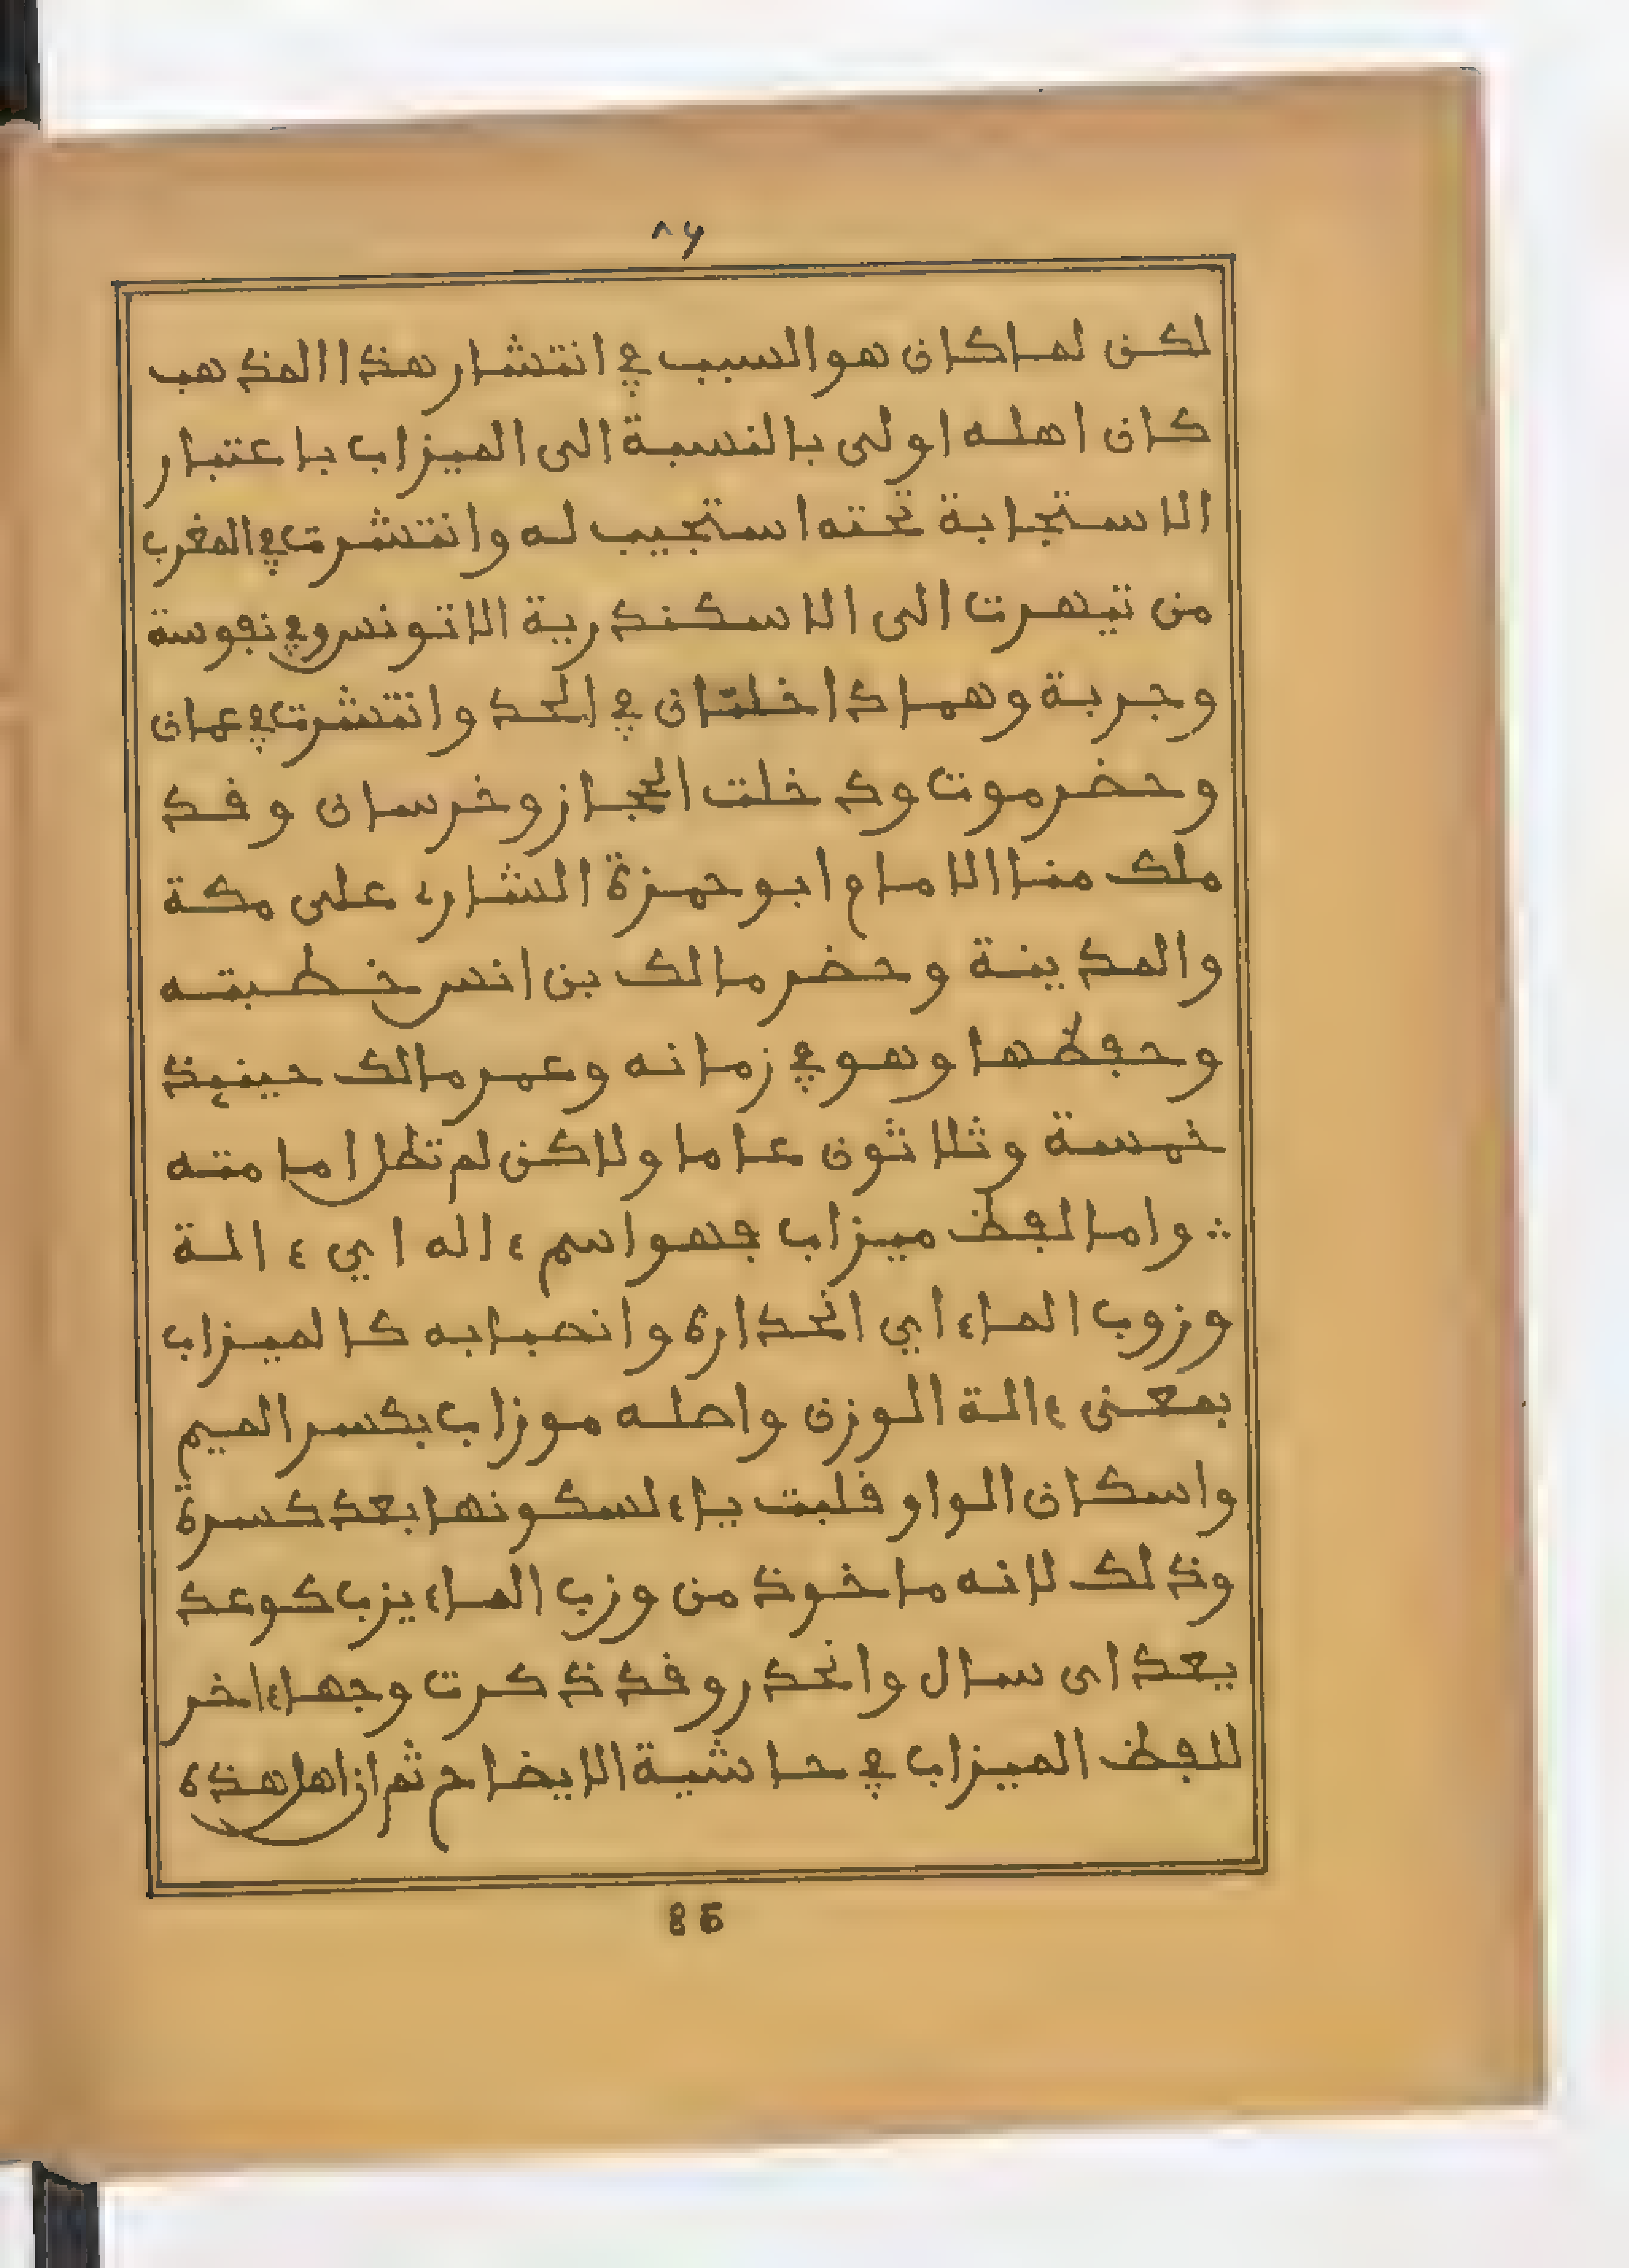 ٨٦
لكن لما كان هو السبب في انتشار هذا المذهب
كان اهله اولى بالنسبة الى الميزاب باعتبار
الاستجابة تحته استجيب له وانتشرت في المغرب
من تيهرت الى الاسكندرية الا تونس وفي نفوسة
وجربة وهما داخلتان في الحد وانتشرت في عمان
وحضرموت ودخلت الحجاز وخرسان وقد
ملك منا الامام ابو حمزة الشارء على مكة
والمدينة وحضر مالك بن انس خطبته
وحفظها وهو في زمانه وعمر مالك حينئذ
خمسة وثلاثون عاما ولاكن لم تطل امامته
∴ واما لفظ ميزاب فهو اسم ءاله اي ءالة
وزوب الماء اي انحداره وانصبابه كالميزاب
بمعنى ءالة الوزن واصله موزاب بكسر الميم
واسكان الواو قلبت ياء لسكونها بعد كسرة
وذلك لانه ماخوذ من وزب الماء يزب كوعد
يعد اى سال وانحدر وقد ذكرت وجها ءاخر
للفظ الميزاب في حاشية الايضاح ثم ان اهل هذه
86